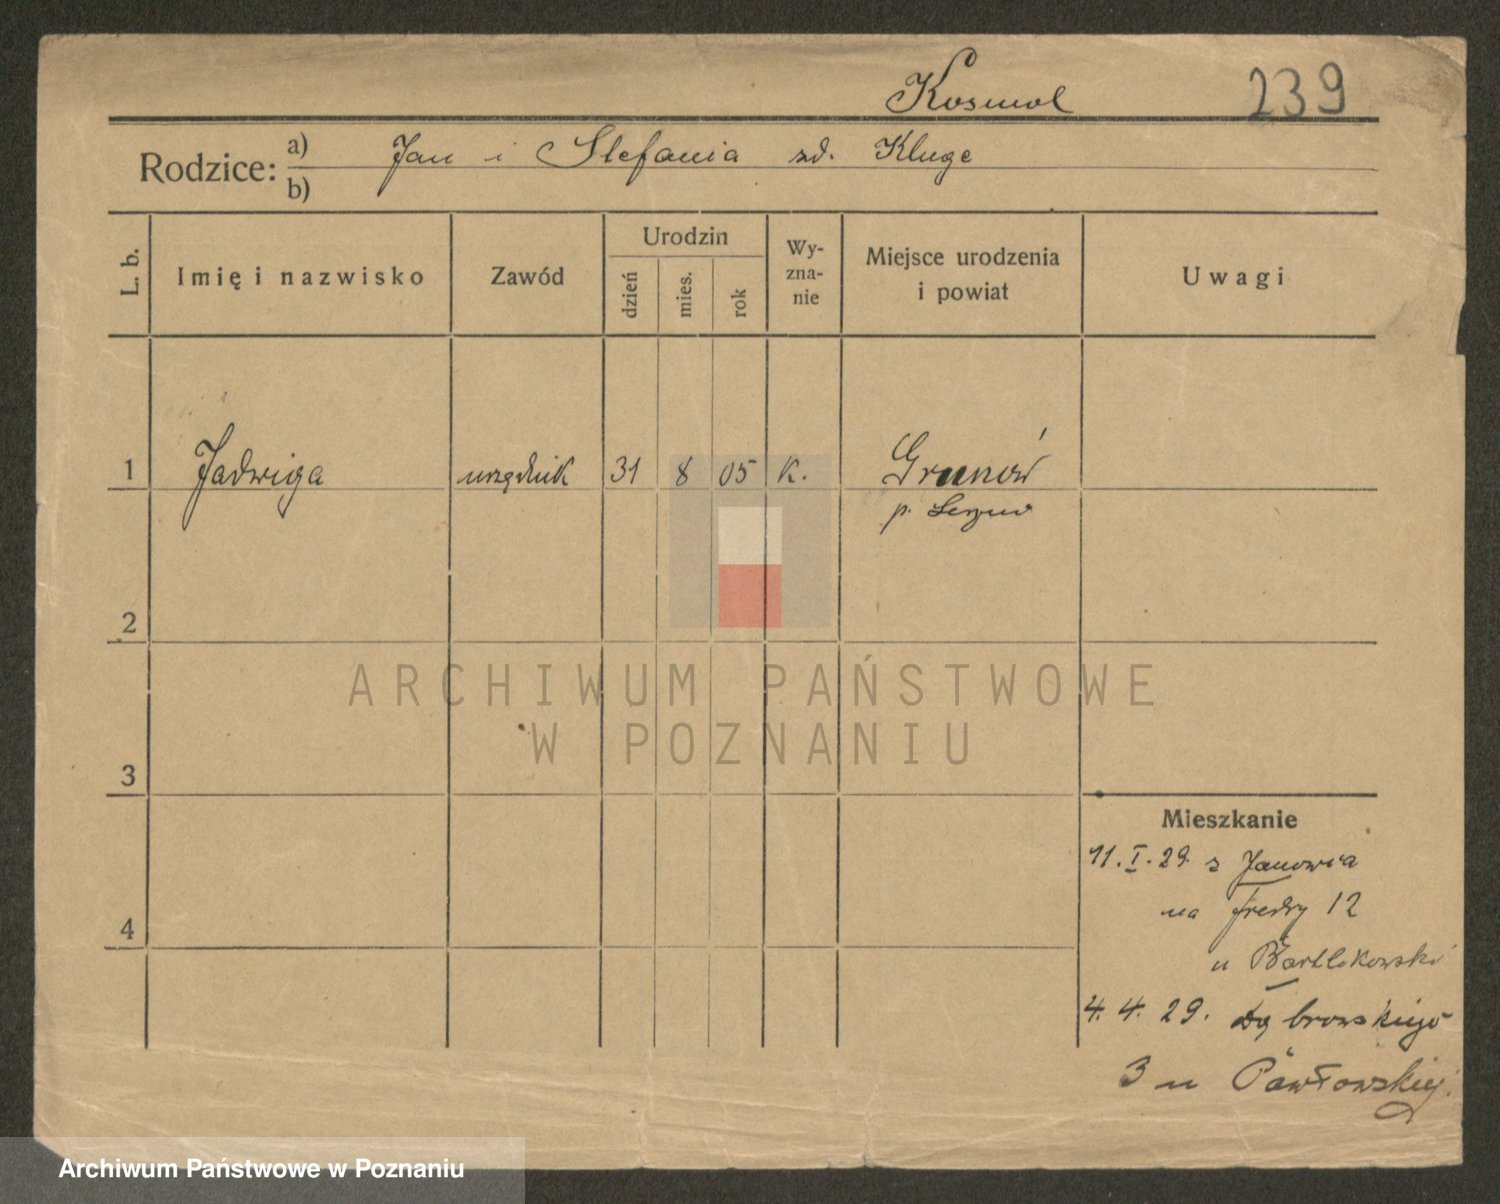 Kosmol 239
Rodzice: a) Jan i Stefania zd. Kluge
b)
L. b. Imię i nazwisko Zawód Urodzin dzień mies. rok Wy-zna-nie Miejsce urodzenia i powiat Uwagi
1 Jadwiga urzędnik 31 8 05 k. Grunów
p.
2
ARCHIWUM PAŃSTWOWE
W POZNANIU
3
Mieszkanie
11.I.29. z Janowca
na Fredry 12
4
u Bartlikowski
4.4.29. Dąbrowskiego
3 u Pawłowskiej.
Archiwum Państwowe w Poznaniu